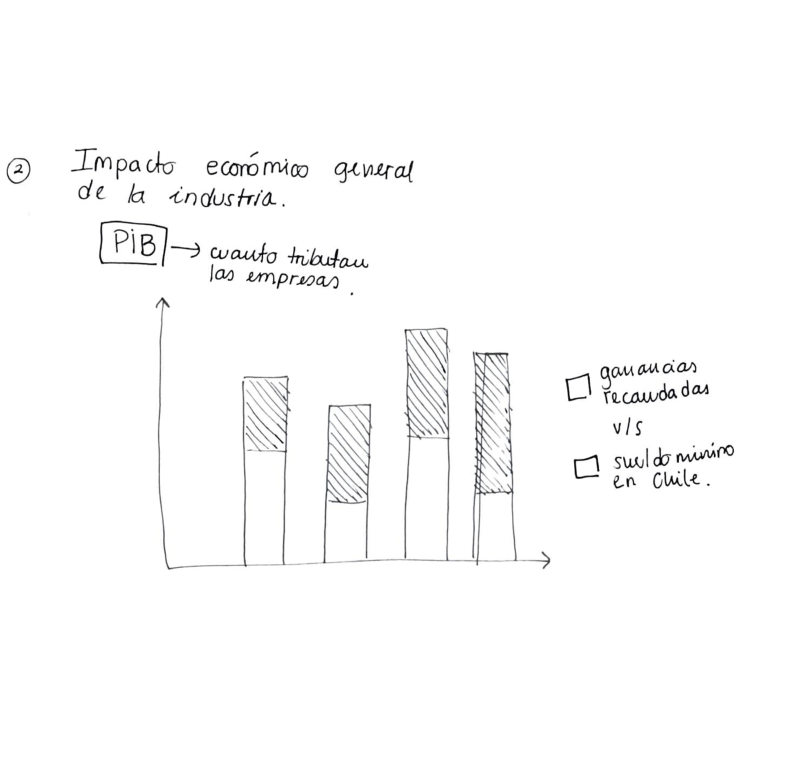 2
Impacto económico general
de la industria.
PIB → cuanto tributan
las empresas.
ganancias
recaudadas
v/s
sueldo minimo
en Chile.